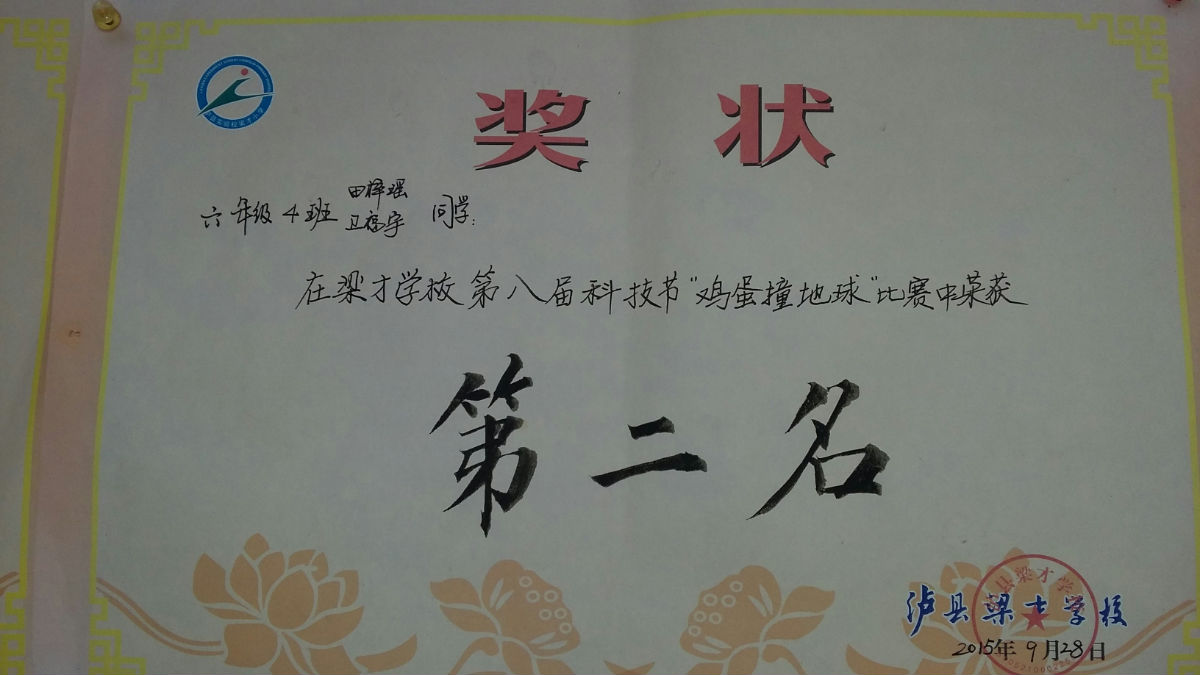 奖 状
六年级4班 田梓瑶
卫裕宇 同学:
在梁才学校第八届科技节"鸡蛋撞地球"比赛中荣获
第二名
泸县梁才学校
2015年9月28日